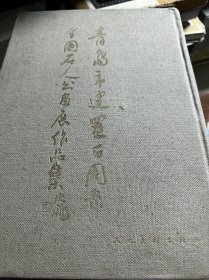 青岛市建置百周年
全国名人书画展作品集
人民美术出版社